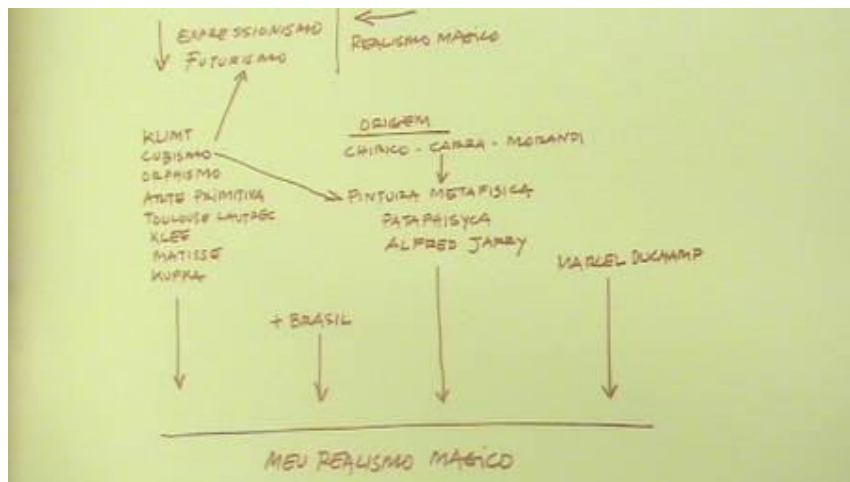 EXPRESSIONISMO
FUTURISMO
REALISMO MAGICO
KLIMT
CUBISMO
ORPHISMO
ARTE PRIMITIVA
TOULOUSE LAUTREC
KLEE
MATISSE
KUPKA
ORIGEM
CHIRICO - CARRA - MORANDI
PINTURA METAFISICA
PATAPHISYCA
ALFRED JARRY
MARCEL DUCHAMP
+ BRASIL
MEU REALISMO MAGICO